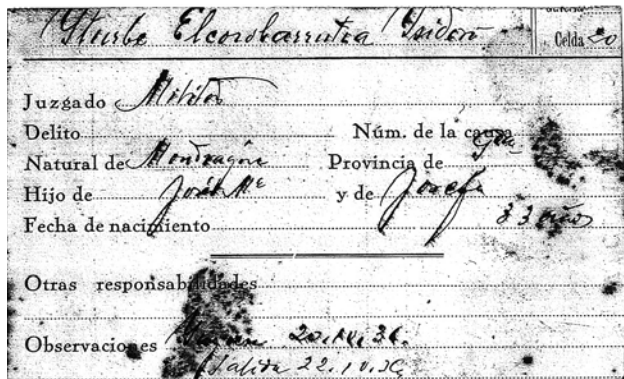 Iturbe Elcorobarrutia Isidoro Celda 20
Juzgado Militar
Delito Núm. de la causa
Natural de Mondragón Provincia de Gui
Hijo de José Mª y de Josefa
Fecha de nacimiento 33 años
Otras responsabilidades
Observaciones 20.10.36.
Salida 22.10.36